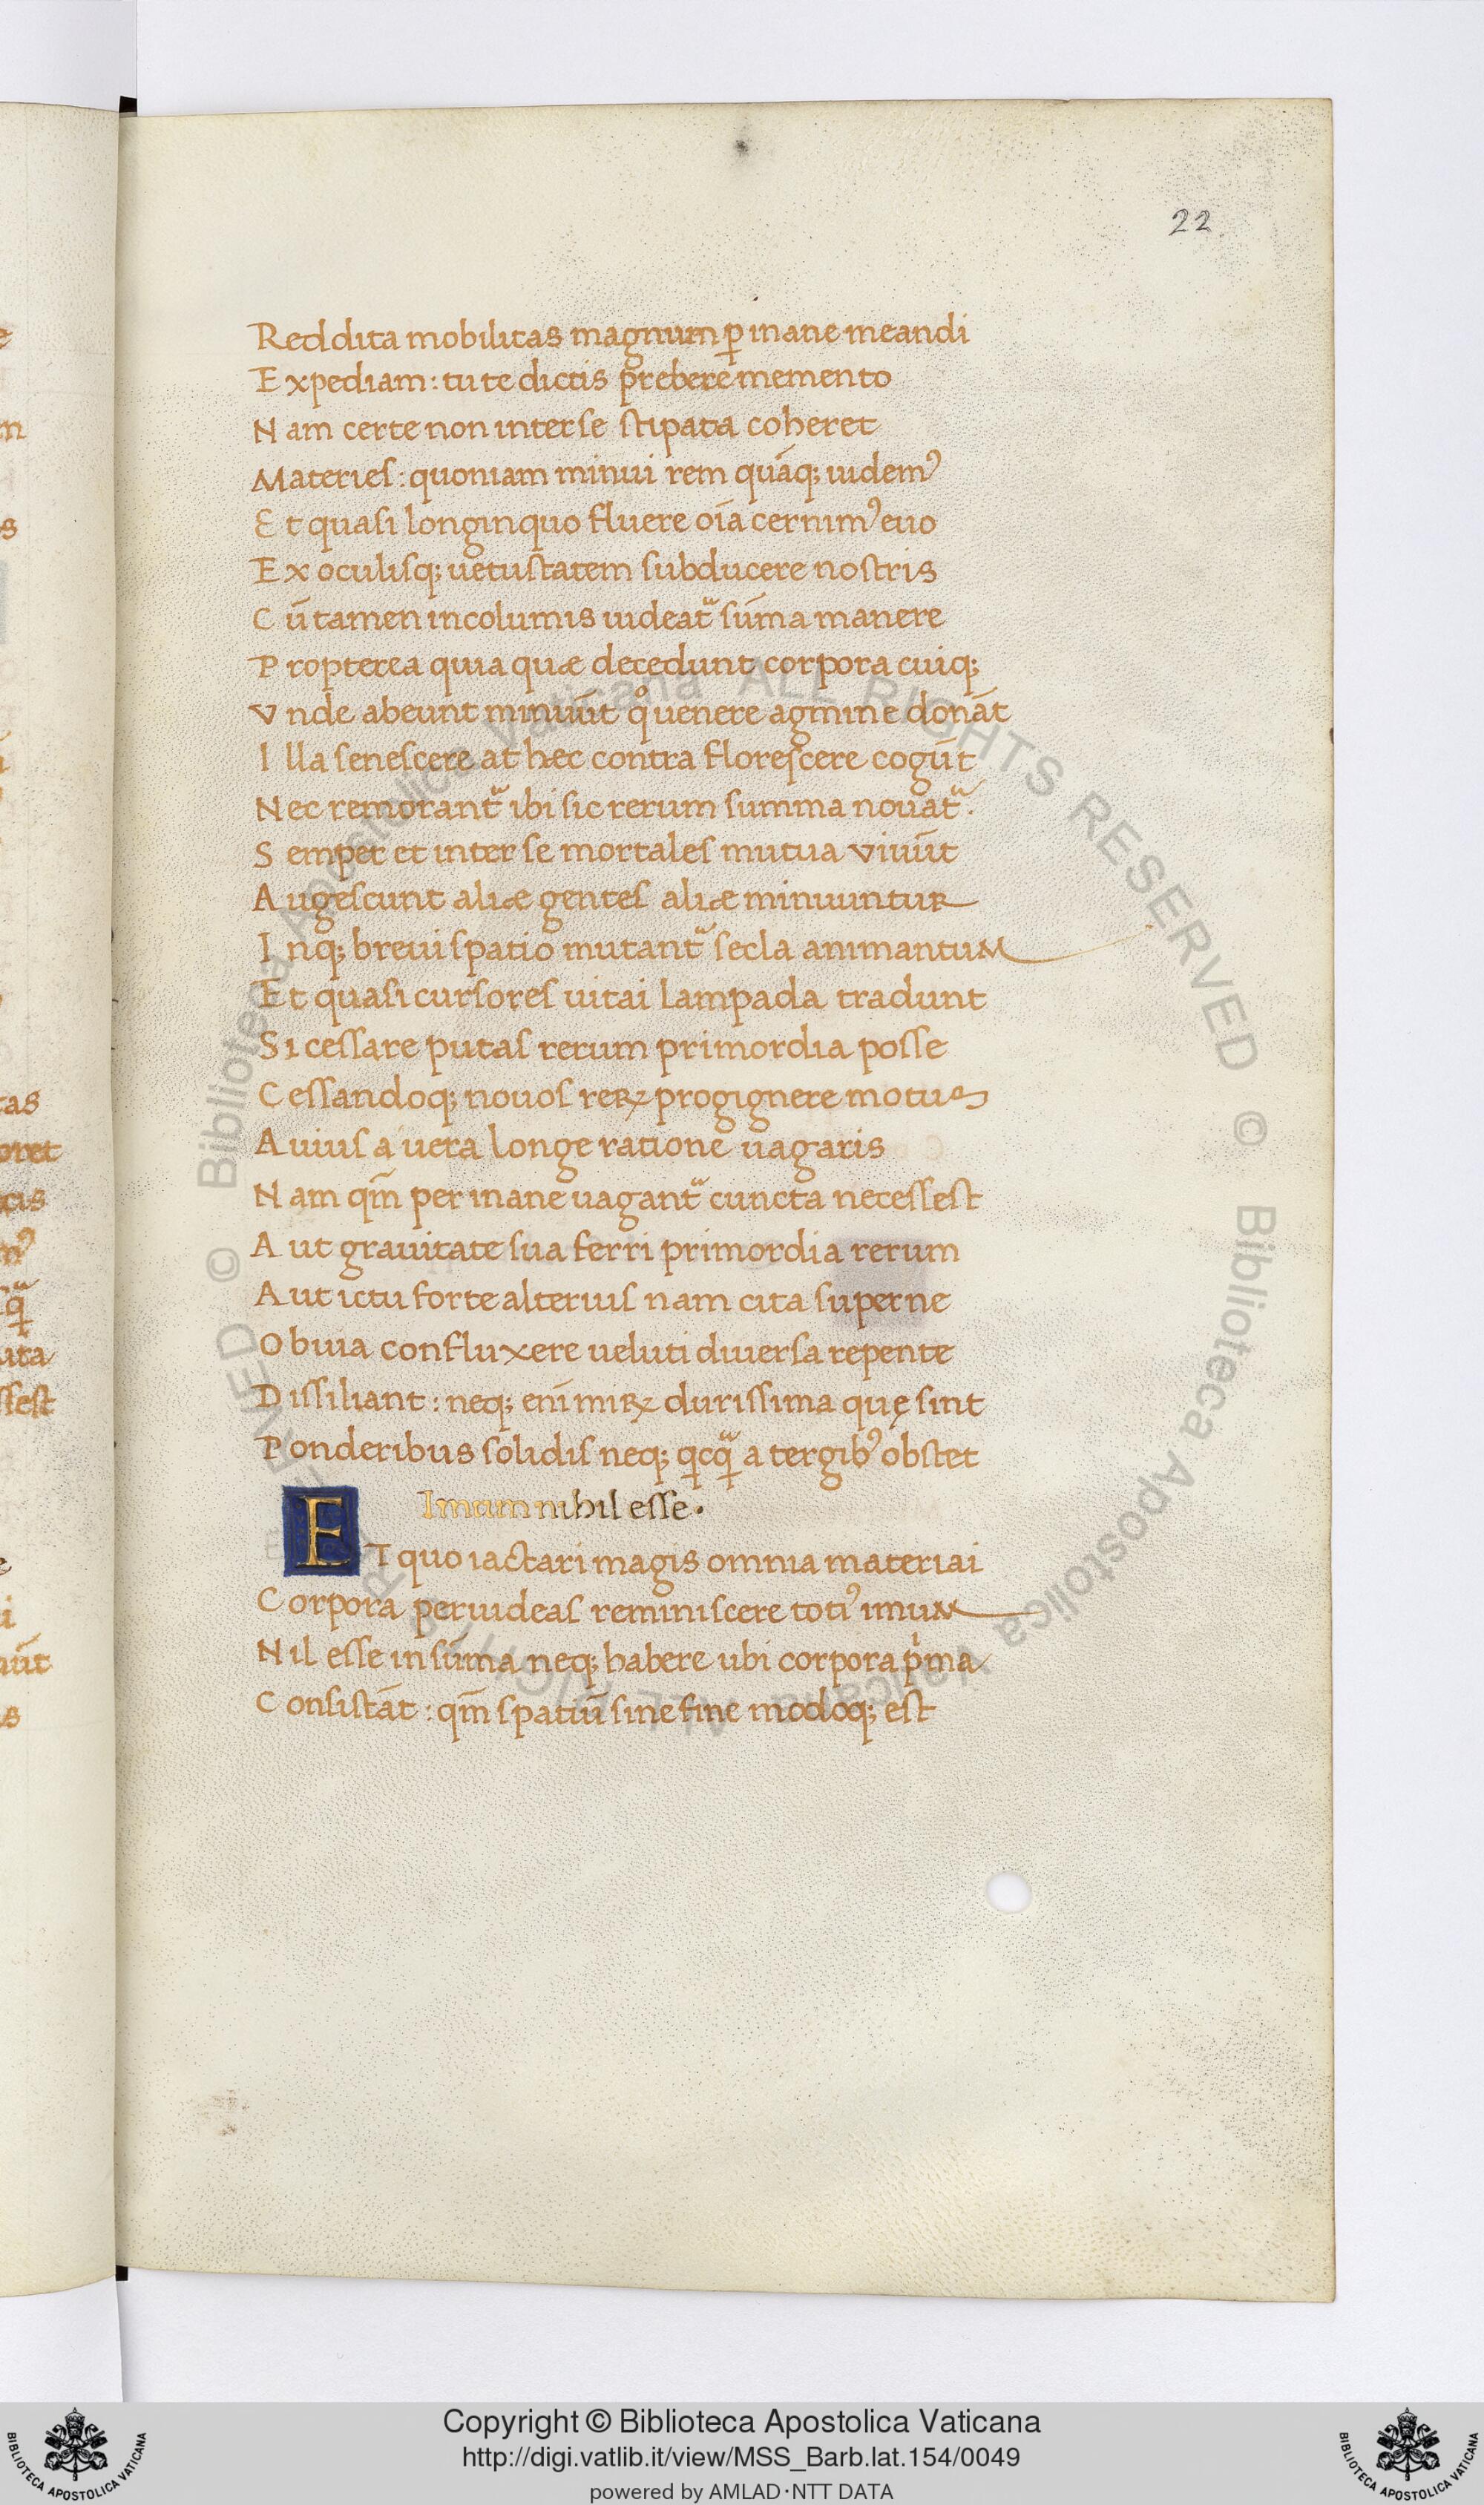 22
Reddita mobilitas magnum ꝑ inane meandi
Expediam: tu te dictis prebere memento
Nam certe non inter se stipata coheret
Materies: quoniam minui rem quāq; uidemꝰ
Et quasi longinquo fluere oīa cernimꝰ euo
Ex oculisq; uetustatem subducere nostris
Cū tamen incolumis uideat᷑ sūma manere
Propterea quia quæ decedunt corpora cuiq;
Vnde abeunt minuūt qͦ uenere agmine donāt
Illa senescere at hec contra florescere cogūt
Nec remorant᷑ ibi sic rerum summa nouat᷑.
Semper et inter se mortales mutua viuūt
Augescunt aliæ gentes aliæ minuuntur
Inq; breui spatio mutant᷑ secla animantum
Et quasi cursores uitai lampada tradunt
Si cessare putas rerum primordia posse
Cessandoq; nouos reꝝ progignere motus
Auius a uera longe ratione uagaris
Nam qm̄ per inane uagant᷑ cuncta necessest
Aut grauitate sua ferri primordia rerum
Aut ictu forte alterius nam cita superne
Obuia confluxere ueluti diuersa repente
Dissiliant: neq; enī miꝝ durissima quę sint
Ponderibus solidis neq; qcqᷓ a tergibꝰ obstet
Imum nihil esse.
ET quo iactari magis omnia materiai
Corpora peruideas reminiscere totiꝰ imum
Nil esse in sūma neq; habere ubi corpora pͥma
Consistāt: qm̄ spatiū sine fine modoq; est
© Biblioteca Apostolica Vaticana ALL RIGHTS RESERVED © Biblioteca Apostolica Vaticana ALL RIGHTS RESERVED
Copyright © Biblioteca Apostolica Vaticana
http://digi.vatlib.it/view/MSS_Barb.lat.154/0049
powered by AMLAD·NTT DATA
BIBLIOTECA APOSTOLICA VATICANA
BIBLIOTECA APOSTOLICA VATICANA